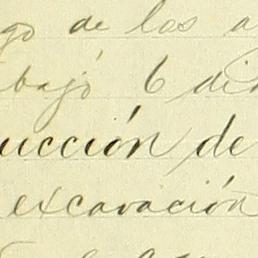 go de los a
bajó 6 di
ucción de
excavación